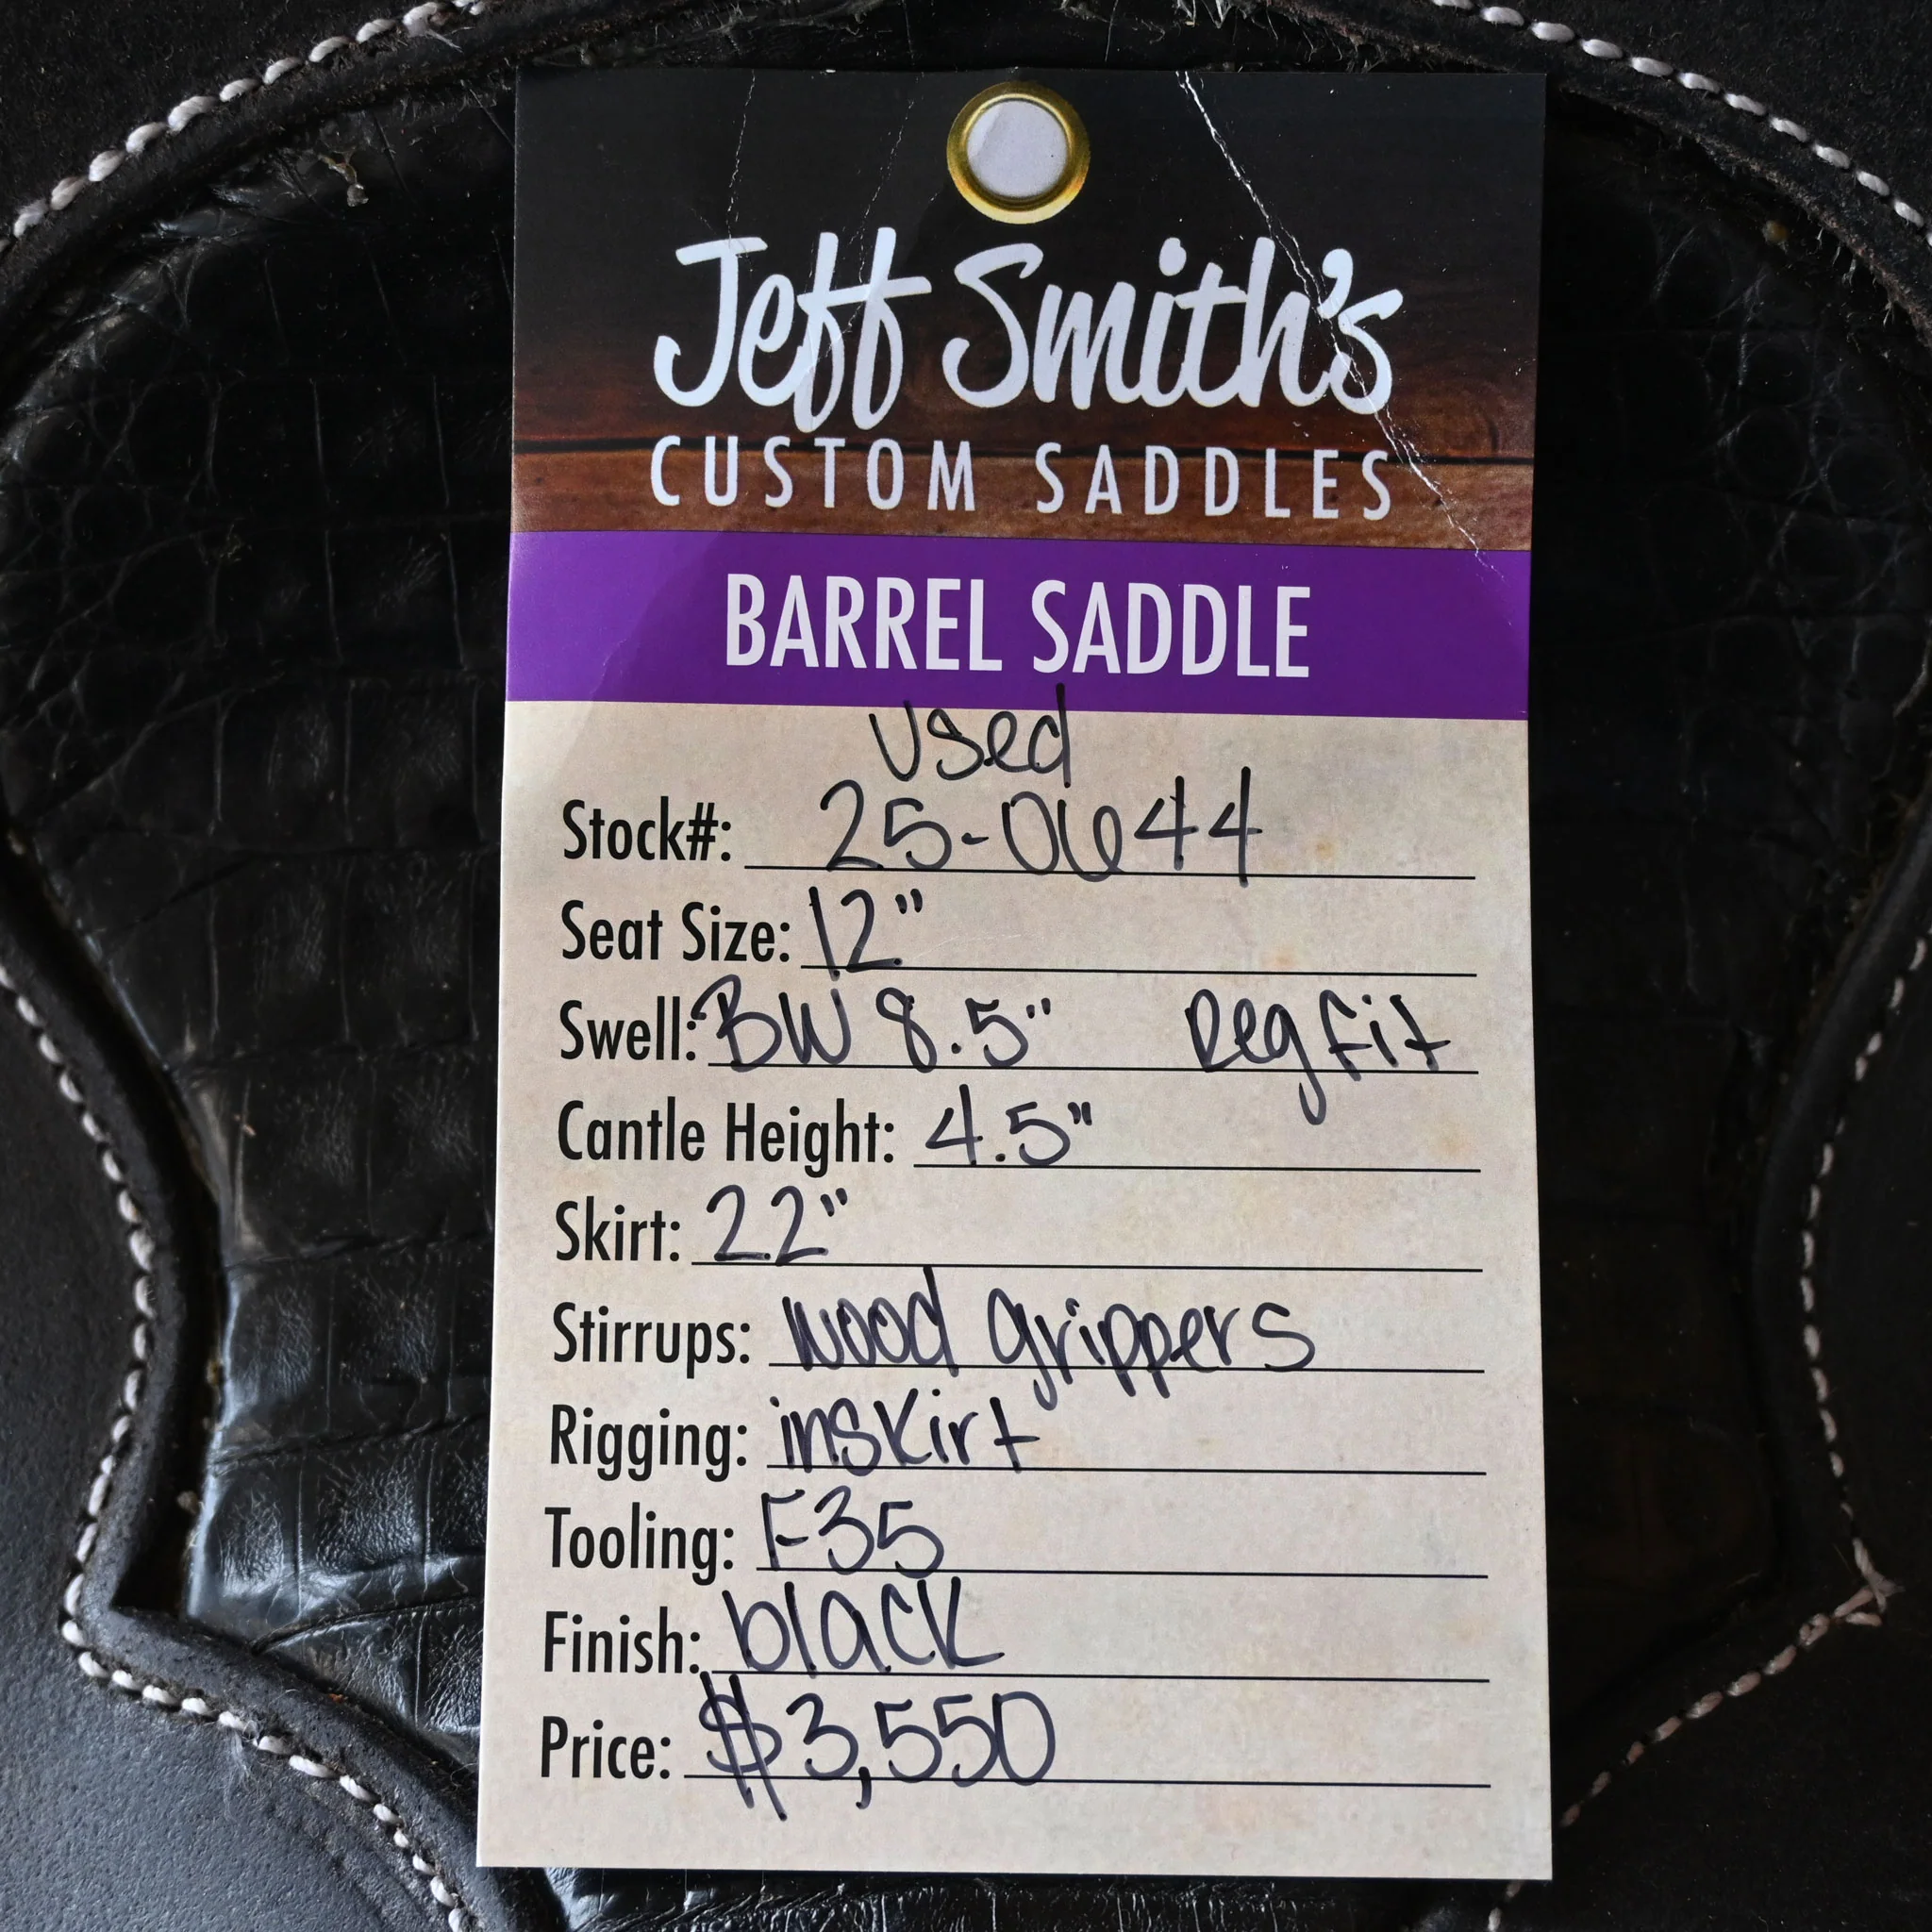 Jeff Smith's
CUSTOM SADDLES
BARREL SADDLE
Used
Stock#: 25-0644
Seat Size: 12"
Swell: BW 8.5" Reg fit
Cantle Height: 4.5"
Skirt: 22"
Stirrups: wood grippers
Rigging: inskirt
Tooling: F35
Finish: black
Price: $3,550